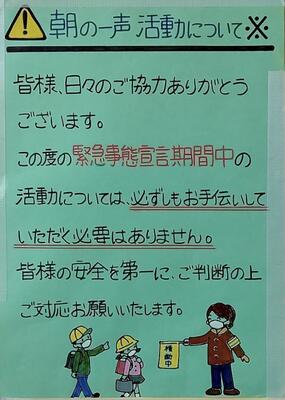 朝の一声 活動について※
皆様、日々のご協力ありがとう
ございます。
この度の緊急事態宣言期間中の
活動については、必ずしもお手伝いして
いただく必要はありません。
皆様の安全を第一に、ご判断の上
ご対応お願いいたします。